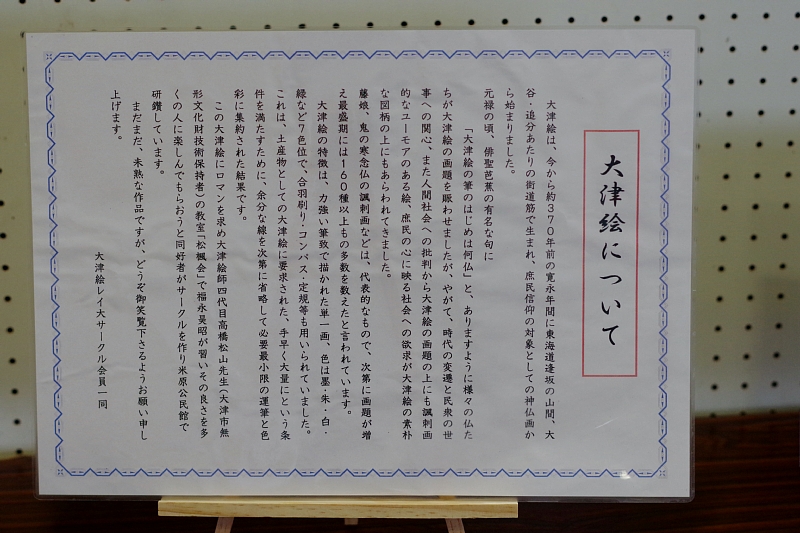 大津絵について
大津絵は、今から約370年前の寛永年間に東海道逢坂の山間、大
谷・追分あたりの街道筋で生まれ、庶民信仰の対象としての神仏画か
ら始まりました。
元禄の頃、俳聖芭蕉の有名な句に
「大津絵の筆のはじめは何仏」と、ありますように様々の仏た
ちが大津絵の画題を賑わせましたが、やがて、時代の変遷と民衆の世
事への関心、また人間社会への批判から大津絵の画題の上にも諷刺画
的なユーモアのある絵、庶民の心に映る社会への欲求が大津絵の素朴
な図柄の上にもあらわれてきました。
藤娘、鬼の寒念仏の諷刺画などは、代表的なもので、次第に画題が増
え最盛期には160種以上もの多数を数えたと言われています。
大津絵の特徴は、力強い筆致で描かれた単一画、色は墨・朱・白・
緑など7色位で、合羽刷り・コンパス・定規等も用いられていました。
これは、土産物としての大津絵に要求された、手早く大量にという条
件を満たすために、余分な線を次第に省略して必要最小限の運筆と色
彩に集約された結果です。
この大津絵にロマンを求め大津絵師四代目高橋松山先生(大津市無
形文化財技術保持者)の教室「松楓会」で福永昊昭が習いその良さを多
くの人に楽しんでもらおうと同好者がサークルを作り米原公民館で
研鑽しています。
まだまだ、未熟な作品ですが、どうぞ御笑覧下さるようお願い申し
上げます。
大津絵レイ大サークル会員一同